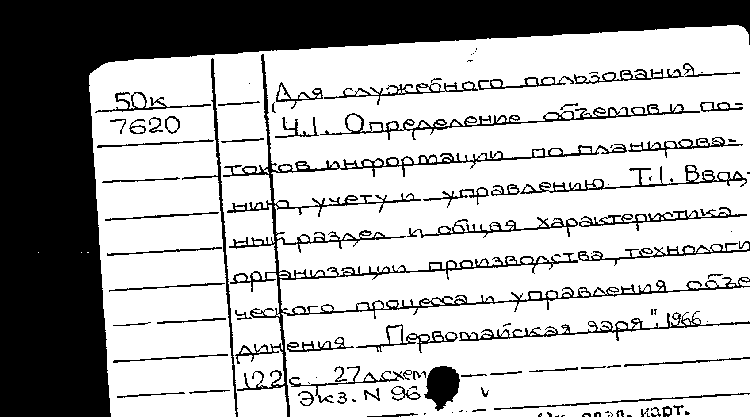 50к
7620
Для служебного пользования
Ч.I. Определение объемов и по=
токов информации по планирова=
нию, учету и управлению. Т.I. Ввод-
ный раздел и общая характеристика
организации производства, технологи
ческого процесса и управления объе
динения „Первомайская заря". 1966.
122 с. 27л.схем
Экз. N 96
карт.